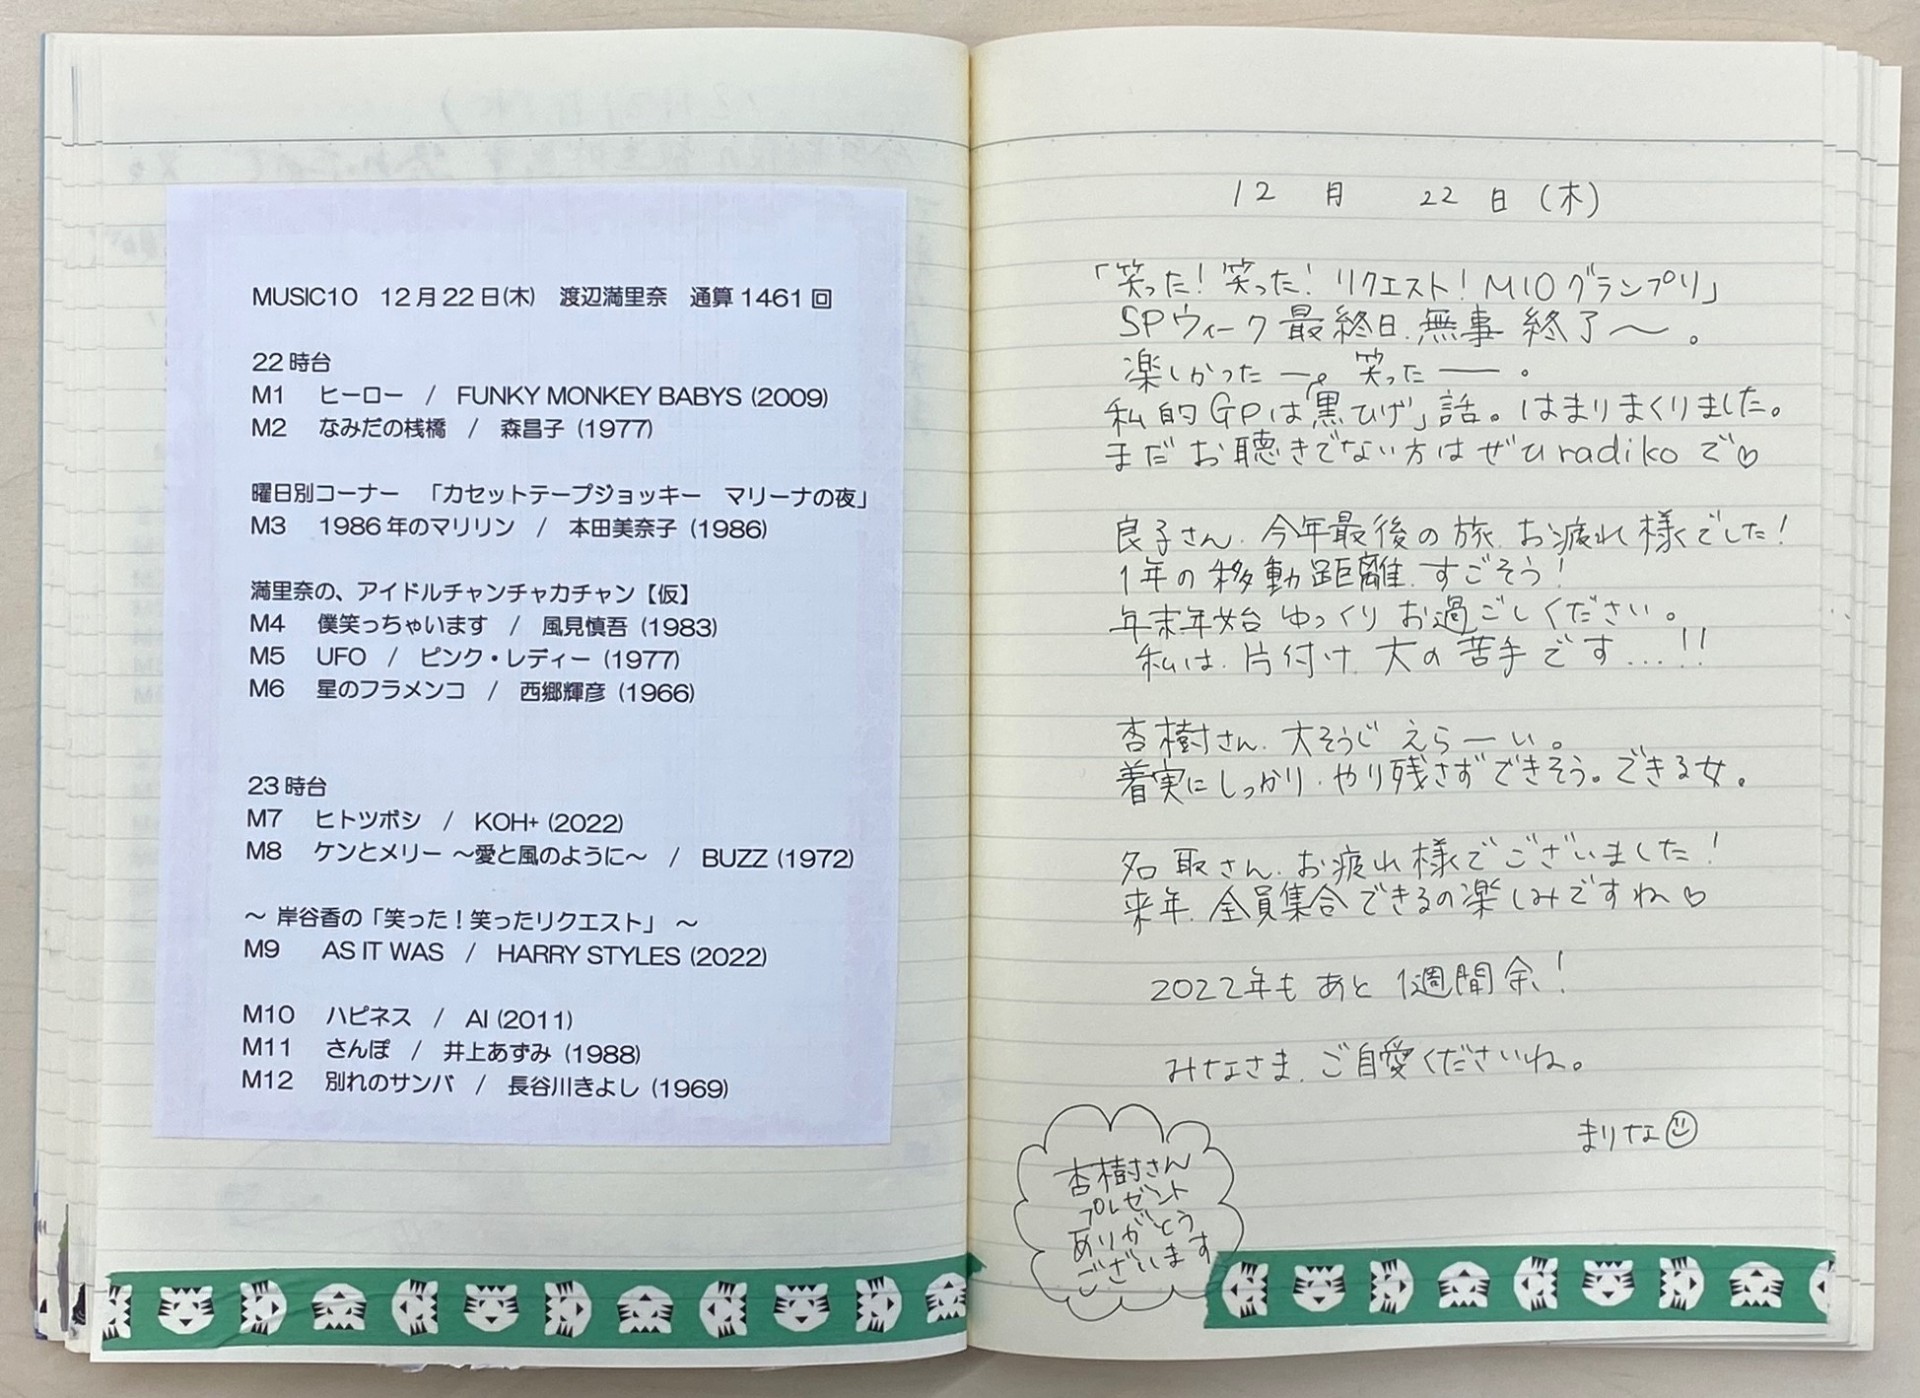 MUSIC10　12月22日(木)　渡辺満里奈　通算1461回
22時台
M1　ヒーロー　/　FUNKY MONKEY BABYS (2009)
M2　なみだの桟橋　/　森昌子 (1977)
曜日別コーナー　「カセットテープジョッキー　マリーナの夜」
M3　1986年のマリリン　/　本田美奈子 (1986)
満里奈の、アイドルチャンチャカチャン【仮】
M4　僕笑っちゃいます　/　風見慎吾 (1983)
M5　UFO　/　ピンク・レディー (1977)
M6　星のフラメンコ　/　西郷輝彦 (1966)
23時台
M7　ヒトツボシ　/　KOH+ (2022)
M8　ケンとメリー ～愛と風のように～　/　BUZZ (1972)
～ 岸谷香の「笑った！笑ったリクエスト」 ～
M9　AS IT WAS　/　HARRY STYLES (2022)
M10　ハピネス　/　AI (2011)
M11　さんぽ　/　井上あずみ (1988)
M12　別れのサンバ　/　長谷川きよし (1969)
12月　22日(木)
「笑った！笑った！リクエスト！M10グランプリ」
SPウィーク最終日、無事 終了〜。
楽しかったー。笑ったー。
私的GPは「黒ひげ」話。はまりまくりました。
まだお聴きでない方はぜひradikoで♡
良子さん、今年最後の旅、お疲れ様でした！
1年の移動距離、すごそう！
年末年始ゆっくりお過ごしください。
私は、片付け、大の苦手です...!!
杏樹さん、大そうじ えらーい。
着実にしっかり、やり残さずできそう。できる女。
名取さん、お疲れ様でございました！
来年、全員集合できるの楽しみですね♡
2022年もあと1週間余！
みなさま、ご自愛くださいね。
まりな☺
杏樹さん
プレゼント
ありがとう
ございます